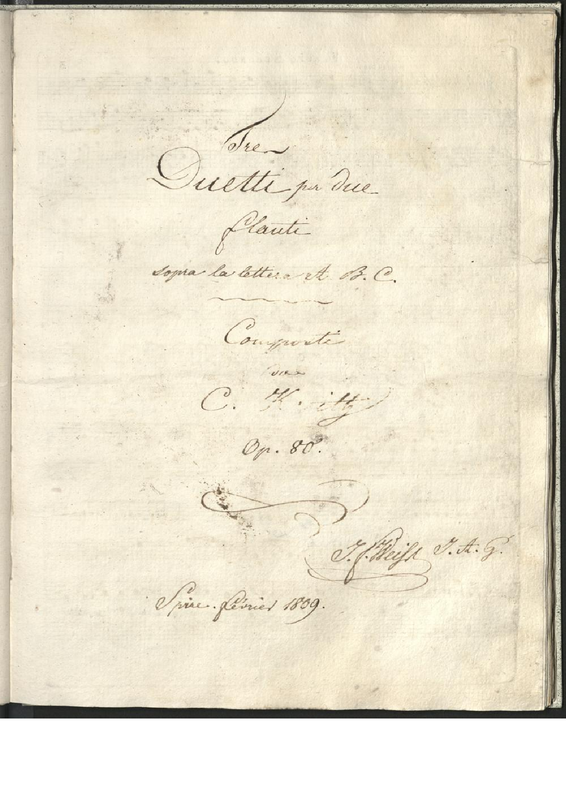 Tre
Duetti per due
flauti
sopra la lettera A B. C.
Composti
von
C.
Op. 80.
J. f. Weiss J. A. G.
Spire. février 1809.